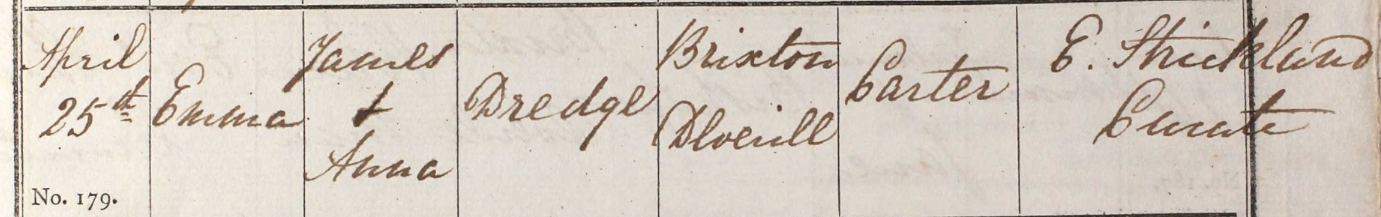 April
25th
Emma
James
&
Anna
Dredge
Brixton
Deverill
Carter
E. Strickland
Curate
No. 179.